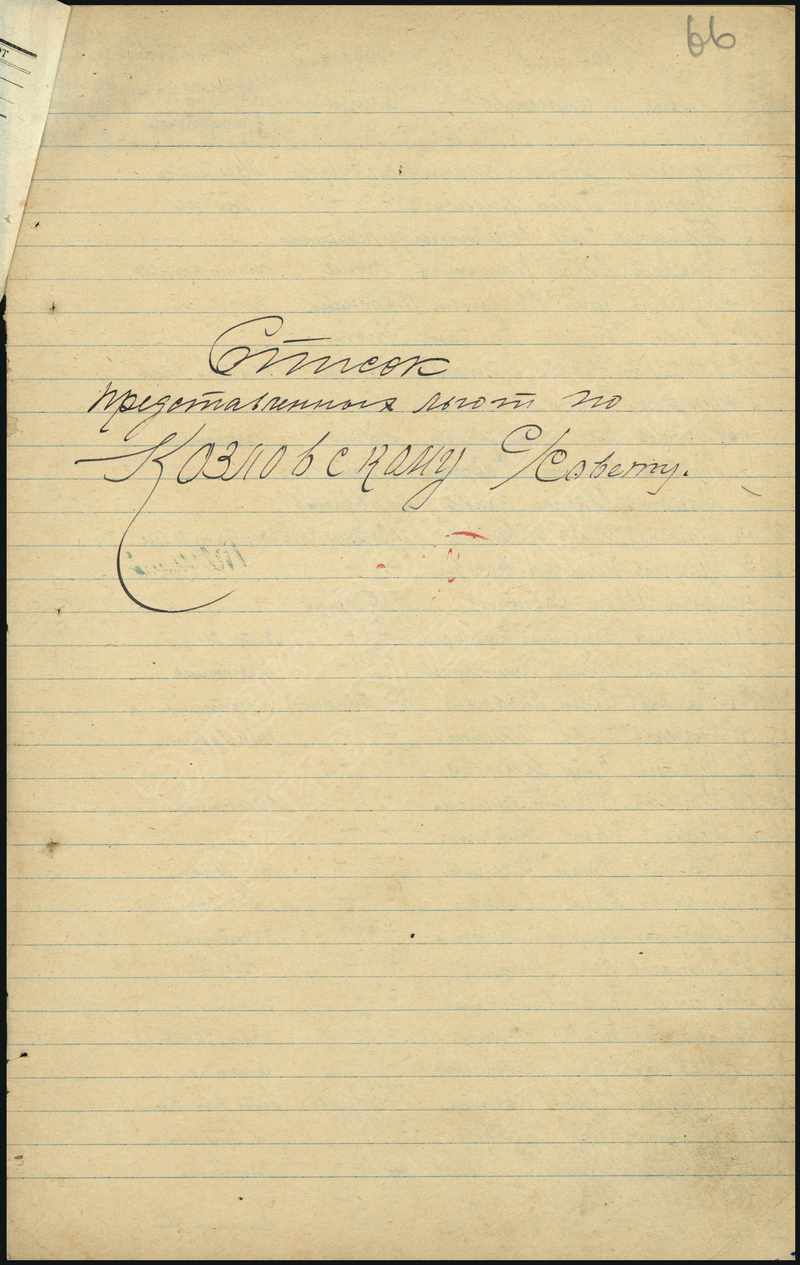 66
Список
представленных льгот по
Козловскому С/Совету.